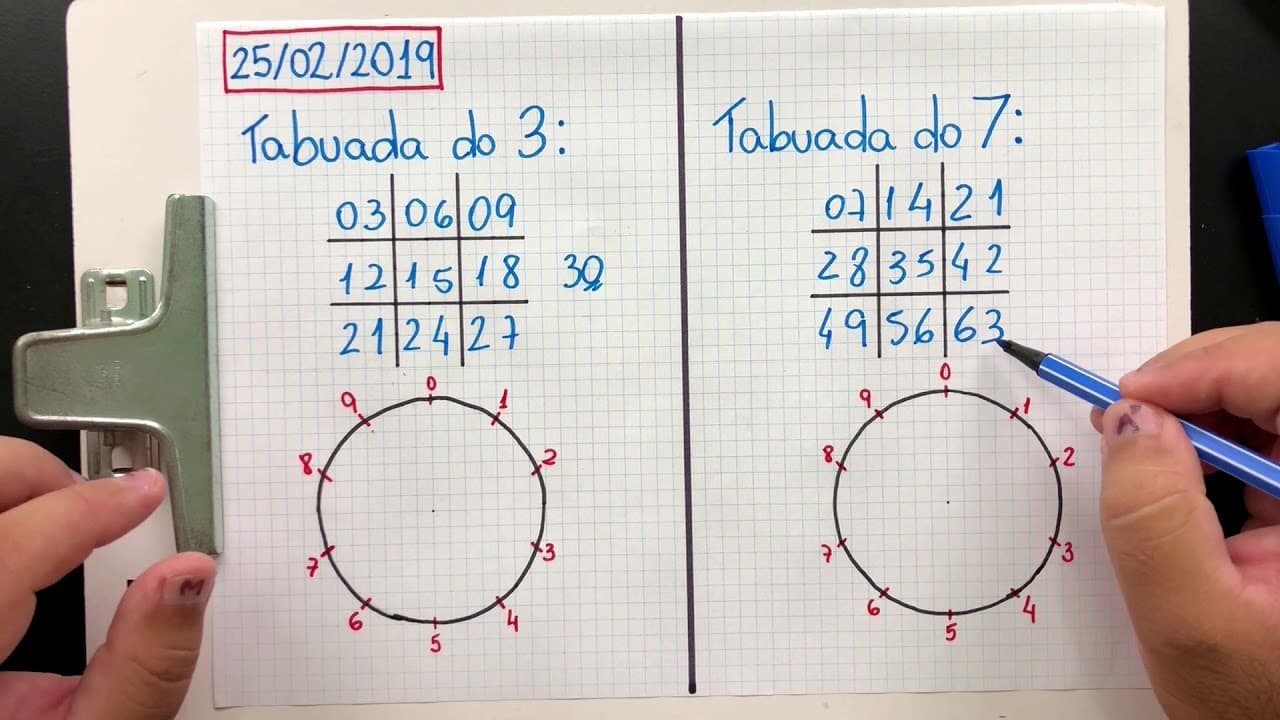 25/02/2019
Tabuada do 3:
03 06 09
12 15 18 30
21 24 27
0
1
2
3
4
5
6
7
8
9
Tabuada do 7:
07 14 21
28 35 42
49 56 63
0
1
2
3
4
5
6
7
8
9